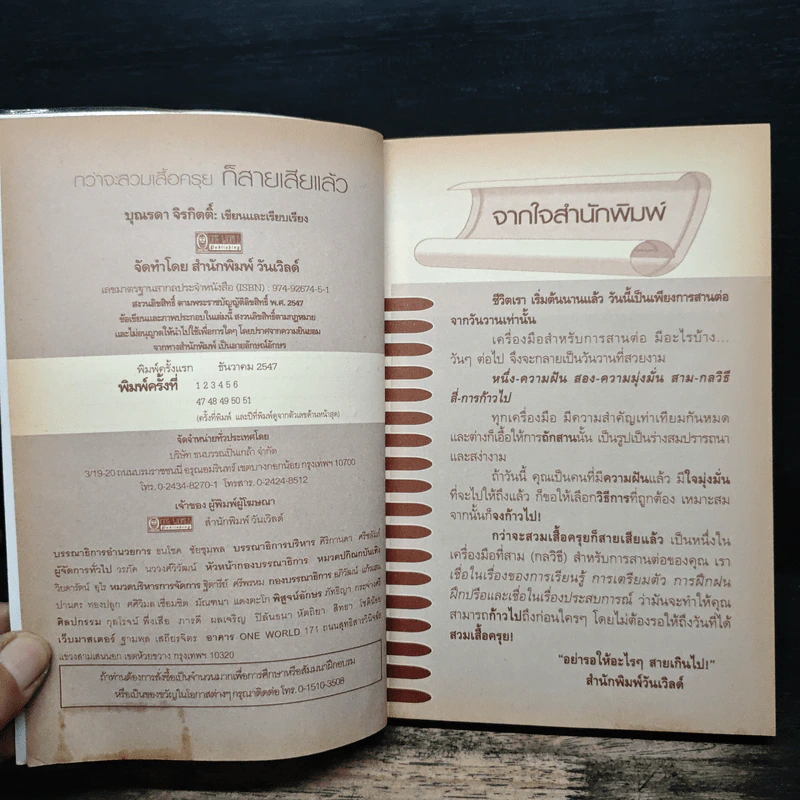 กว่าจะสวมเสื้อครุย ก็สายเสียแล้ว
บุณรดา จิรกิตติ์: เขียนและเรียบเรียง
ONE WORLD
Publishing
จัดทำโดย สำนักพิมพ์ วันเวิลด์
เลขมาตรฐานสากลประจำหนังสือ (ISBN) : 974-92674-5-1
สงวนลิขสิทธิ์ ตามพระราชบัญญัติลิขสิทธิ์ พ.ศ. 2547
ข้อเขียนและภาพประกอบในเล่มนี้ สงวนลิขสิทธิ์ตามกฎหมาย
และไม่อนุญาตให้นำไปใช้เพื่อการใดๆ โดยปราศจากความยินยอม
จากทางสำนักพิมพ์ เป็นลายลักษณ์อักษร
พิมพ์ครั้งแรก ธันวาคม 2547
พิมพ์ครั้งที่ 1 2 3 4 5 6
47 48 49 50 51
(ครั้งที่พิมพ์ และปีที่พิมพ์ดูจากตัวเลขด้านหน้าสุด)
จัดจำหน่ายทั่วประเทศโดย
บริษัท ธนบรรณปิ่นเกล้า จำกัด
3/19-20 ถนนบรมราชชนนี อรุณอมรินทร์ เขตบางกอกน้อย กรุงเทพฯ 10700
โทร. 0-2434-8270-1 โทรสาร. 0-2424-8512
เจ้าของ ผู้พิมพ์ผู้โฆษณา
สำนักพิมพ์ วันเวิลด์
บรรณาธิการอำนวยการ ธนโชค ชัยชุมพล บรรณาธิการบริหาร ศิริกานดา ศรีชลัมภ์
ผู้จัดการทั่วไป วรภัค นววงศ์วิวัฒน์ หัวหน้ากองบรรณาธิการ หมวดปกิณกบันเทิง
วิยดารัตน์ อุไร หมวดบริหารการจัดการ ฐิตารีย์ ศรีพรหม กองบรรณาธิการ อภิวัฒน์
ปานดร ทองปลูก ศศิวิมล เขียมขิด มัณฑนา แดงตะโก พิสูจน์อักษร ภัทธิญา
ศิลปกรรม กุลโรจน์ พึ่งเสือ ภารดี ผลเจริญ ปิลันธนา หัตถิยา สิทธา โชตินัย
เว็บมาสเตอร์ ฐามพล เสถียรจิตร อาคาร ONE WORLD 171 ถนนสุทธิสารวินิจฉัย
แขวงสามเสนนอก เขตห้วยขวาง กรุงเทพฯ 10320
ถ้าท่านต้องการสั่งซื้อเป็นจำนวนมากเพื่อการศึกษาหรือสัมมนาฝึกอบรม
หรือเป็นของขวัญในโอกาสต่างๆ กรุณาติดต่อ โทร. 0-1510-3508
จากใจสำนักพิมพ์
ชีวิตเรา เริ่มต้นนานแล้ว วันนี้เป็นเพียงการสานต่อ
จากวันวานเท่านั้น
เครื่องมือสำหรับการสานต่อ มีอะไรบ้าง...
วันๆ ต่อไป จึงจะกลายเป็นวันวานที่สวยงาม
หนึ่ง-ความฝัน สอง-ความมุ่งมั่น สาม-กลวิธี
สี่-การก้าวไป
ทุกเครื่องมือ มีความสำคัญเท่าเทียมกันหมด
และต่างก็เอื้อให้การถักสานนั้น เป็นรูปเป็นร่างสมปรารถนา
และสง่างาม
ถ้าวันนี้ คุณเป็นคนที่มีความฝันแล้ว มีใจมุ่งมั่น
ที่จะไปให้ถึงแล้ว ก็ขอให้เลือกวิธีการที่ถูกต้อง เหมาะสม
จากนั้นก็จงก้าวไป!
กว่าจะสวมเสื้อครุยก็สายเสียแล้ว เป็นหนึ่งใน
เครื่องมือที่สาม (กลวิธี) สำหรับการสานต่อของคุณ เรา
เชื่อในเรื่องของการเรียนรู้ การเตรียมตัว การฝึกฝน
ฝึกปรือและเชื่อในเรื่องประสบการณ์ ว่ามันจะทำให้คุณ
สามารถก้าวไปถึงก่อนใครๆ โดยไม่ต้องรอให้ถึงวันที่ได้
สวมเสื้อครุย!
“อย่ารอให้อะไรๆ สายเกินไป!”
สำนักพิมพ์วันเวิลด์